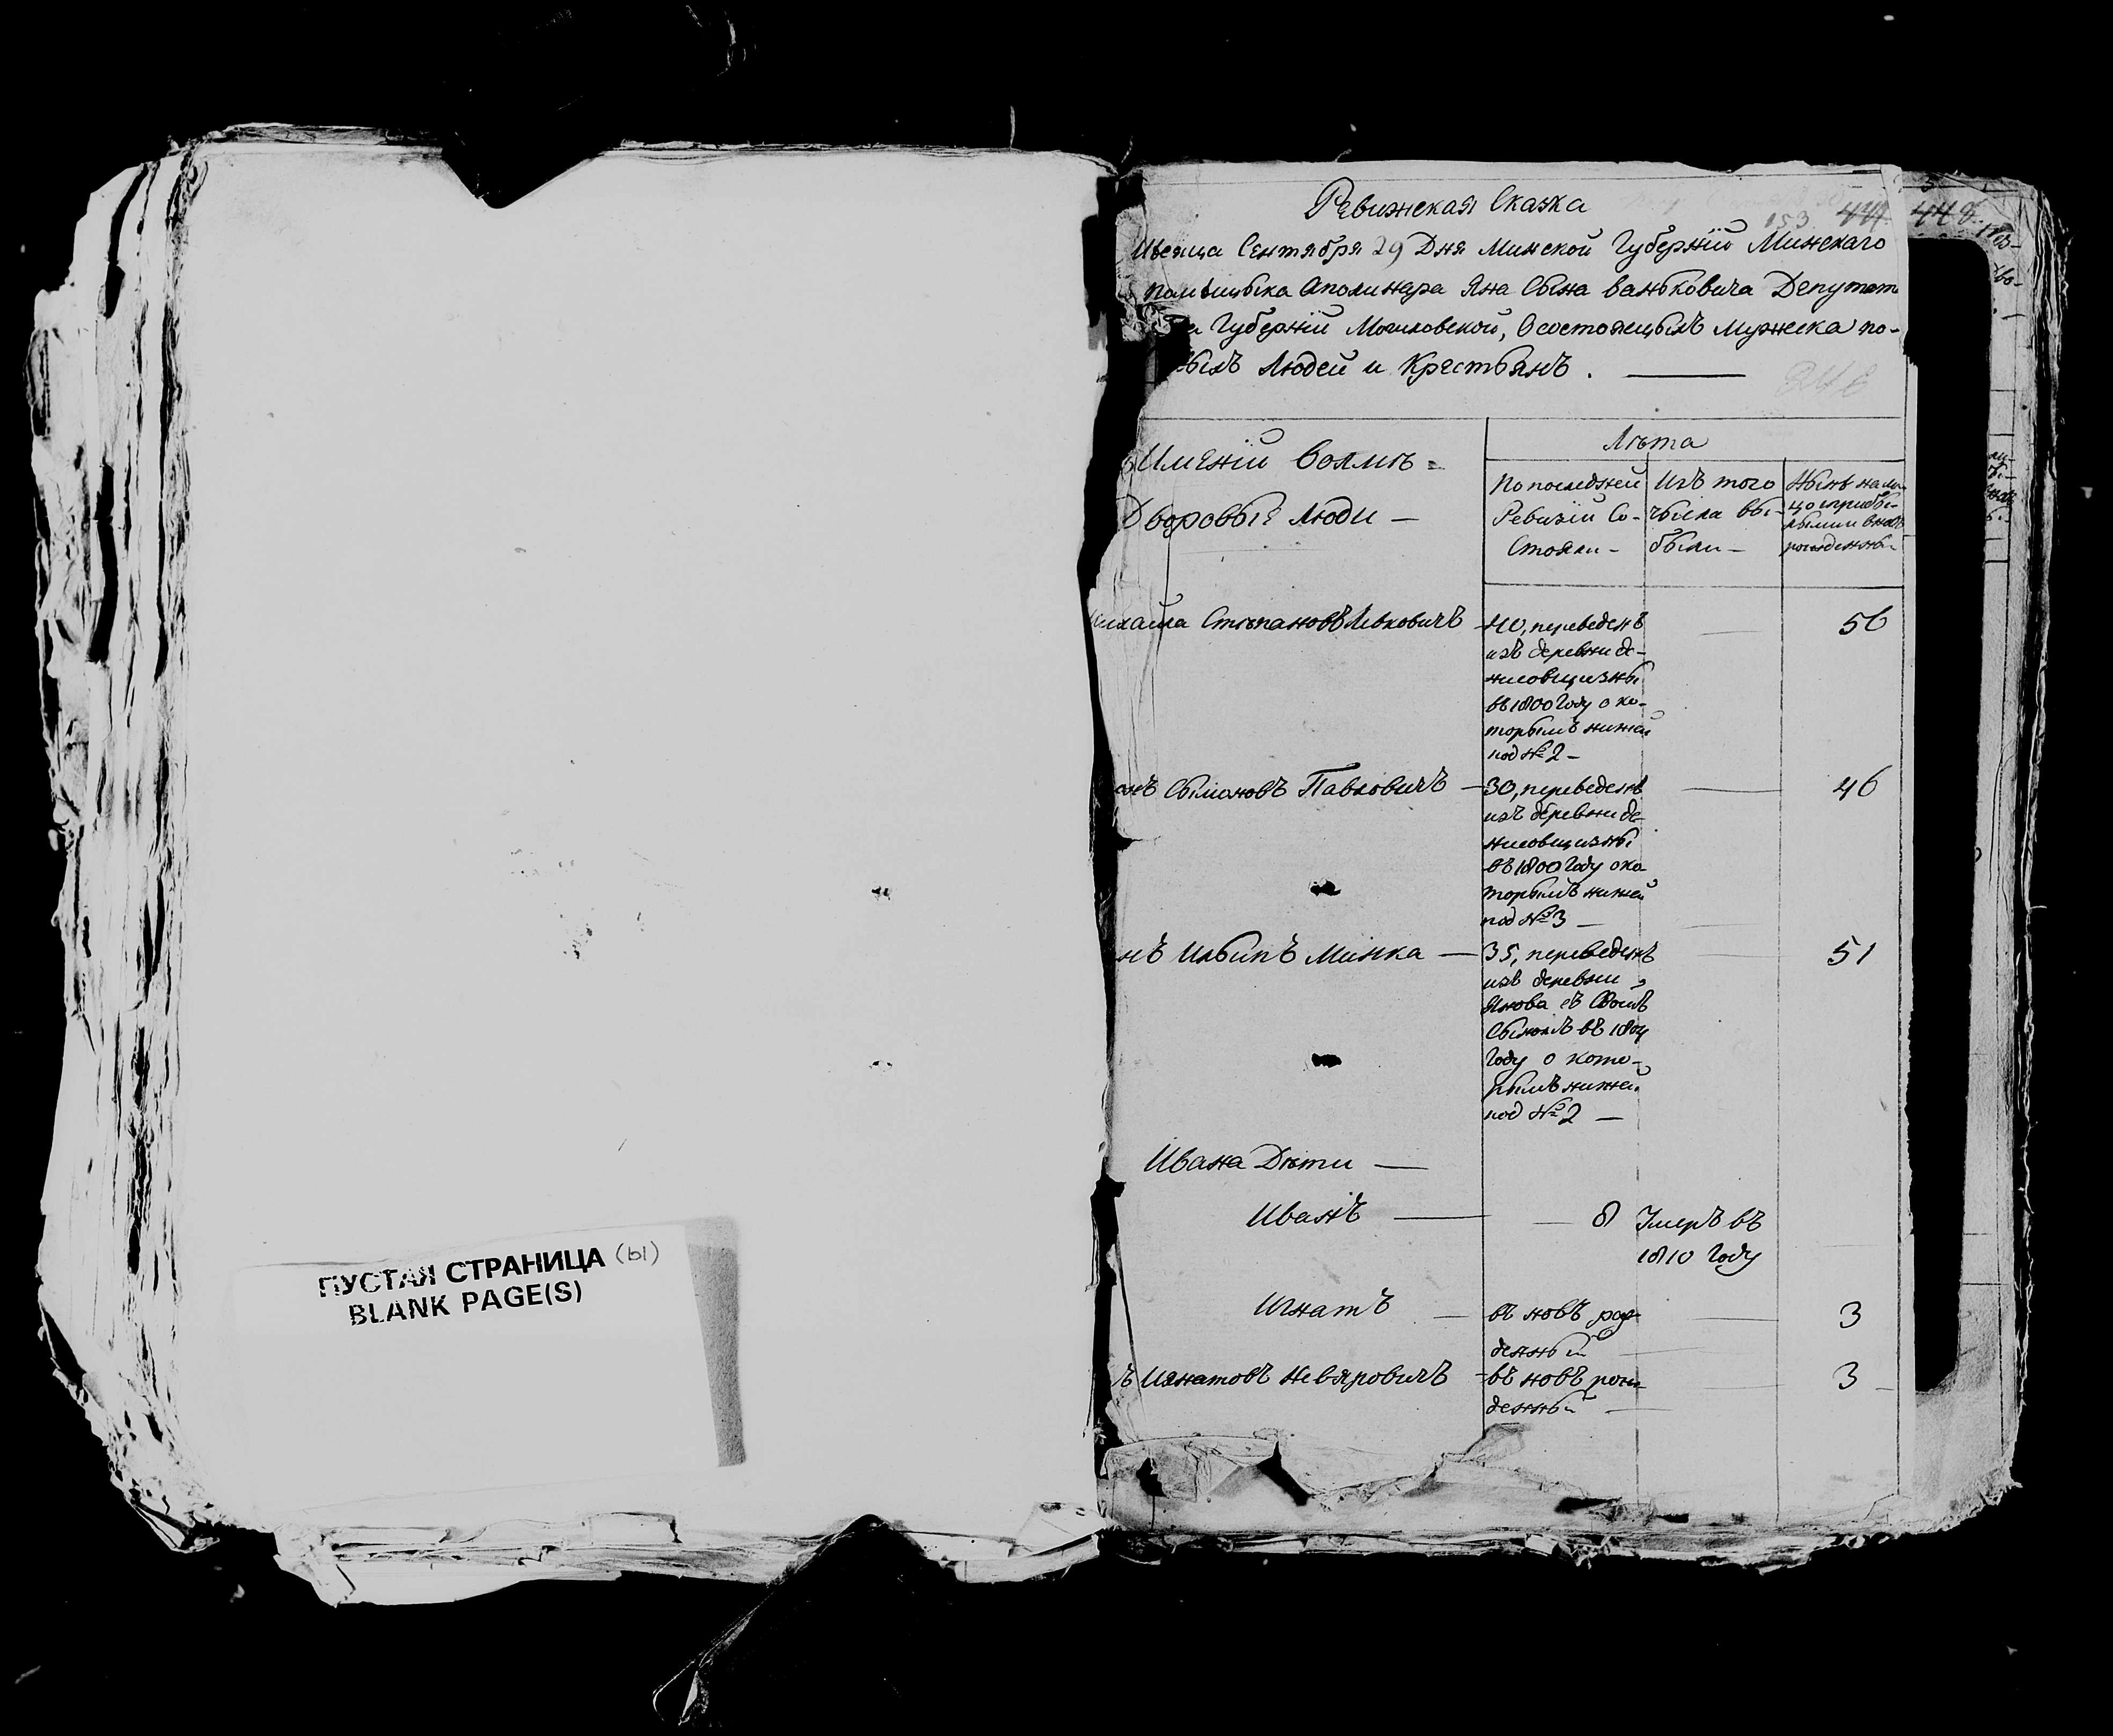 ПУСТАЯ СТРАНИЦА (ы)
BLANK PAGE(S)
Ревижская Сказка
153
Месяца Сентября 29 Дня Минской Губернїи Минскаго
помещыка Аполинара Яна Сына ваньковича Депутат
Губернїи Могиловской, О состоящыхъ мужеска по-
выхъ Людей и Крестьянъ.
Имѣнїи Волмѣ
Лѣта
Дворовыя Люди —
По последней
Ревизїи Со-
Стояли -
Изъ того
числа вы-
были -
Нынѣ на ли-
михайла Стѣпановъ Левковичъ
40, переведенъ
изъ деревни де-
нисовщизны
въ 1800 Году о ко-
торымъ нижей
под № 2 -
56
Сымоновъ Павловичъ
30, переведенъ
изъ деревни де-
нисовщизны
въ 1800 Году о ко-
торымъ нижей
под № 3 —
46
нъ Ильинъ Минка
35, переведенъ
изъ деревни
Янова съ Своимъ
Сыномъ въ
Году о кото-
рымъ нижей
под № 2 —
51
Ивана Дѣти —
Иванъ
8
Умеръ въ
1810 Году
Игнатъ
въ новъ рож-
денный
3
ъ Игнатовъ Невяровичъ
въ новъ рож-
денный
3